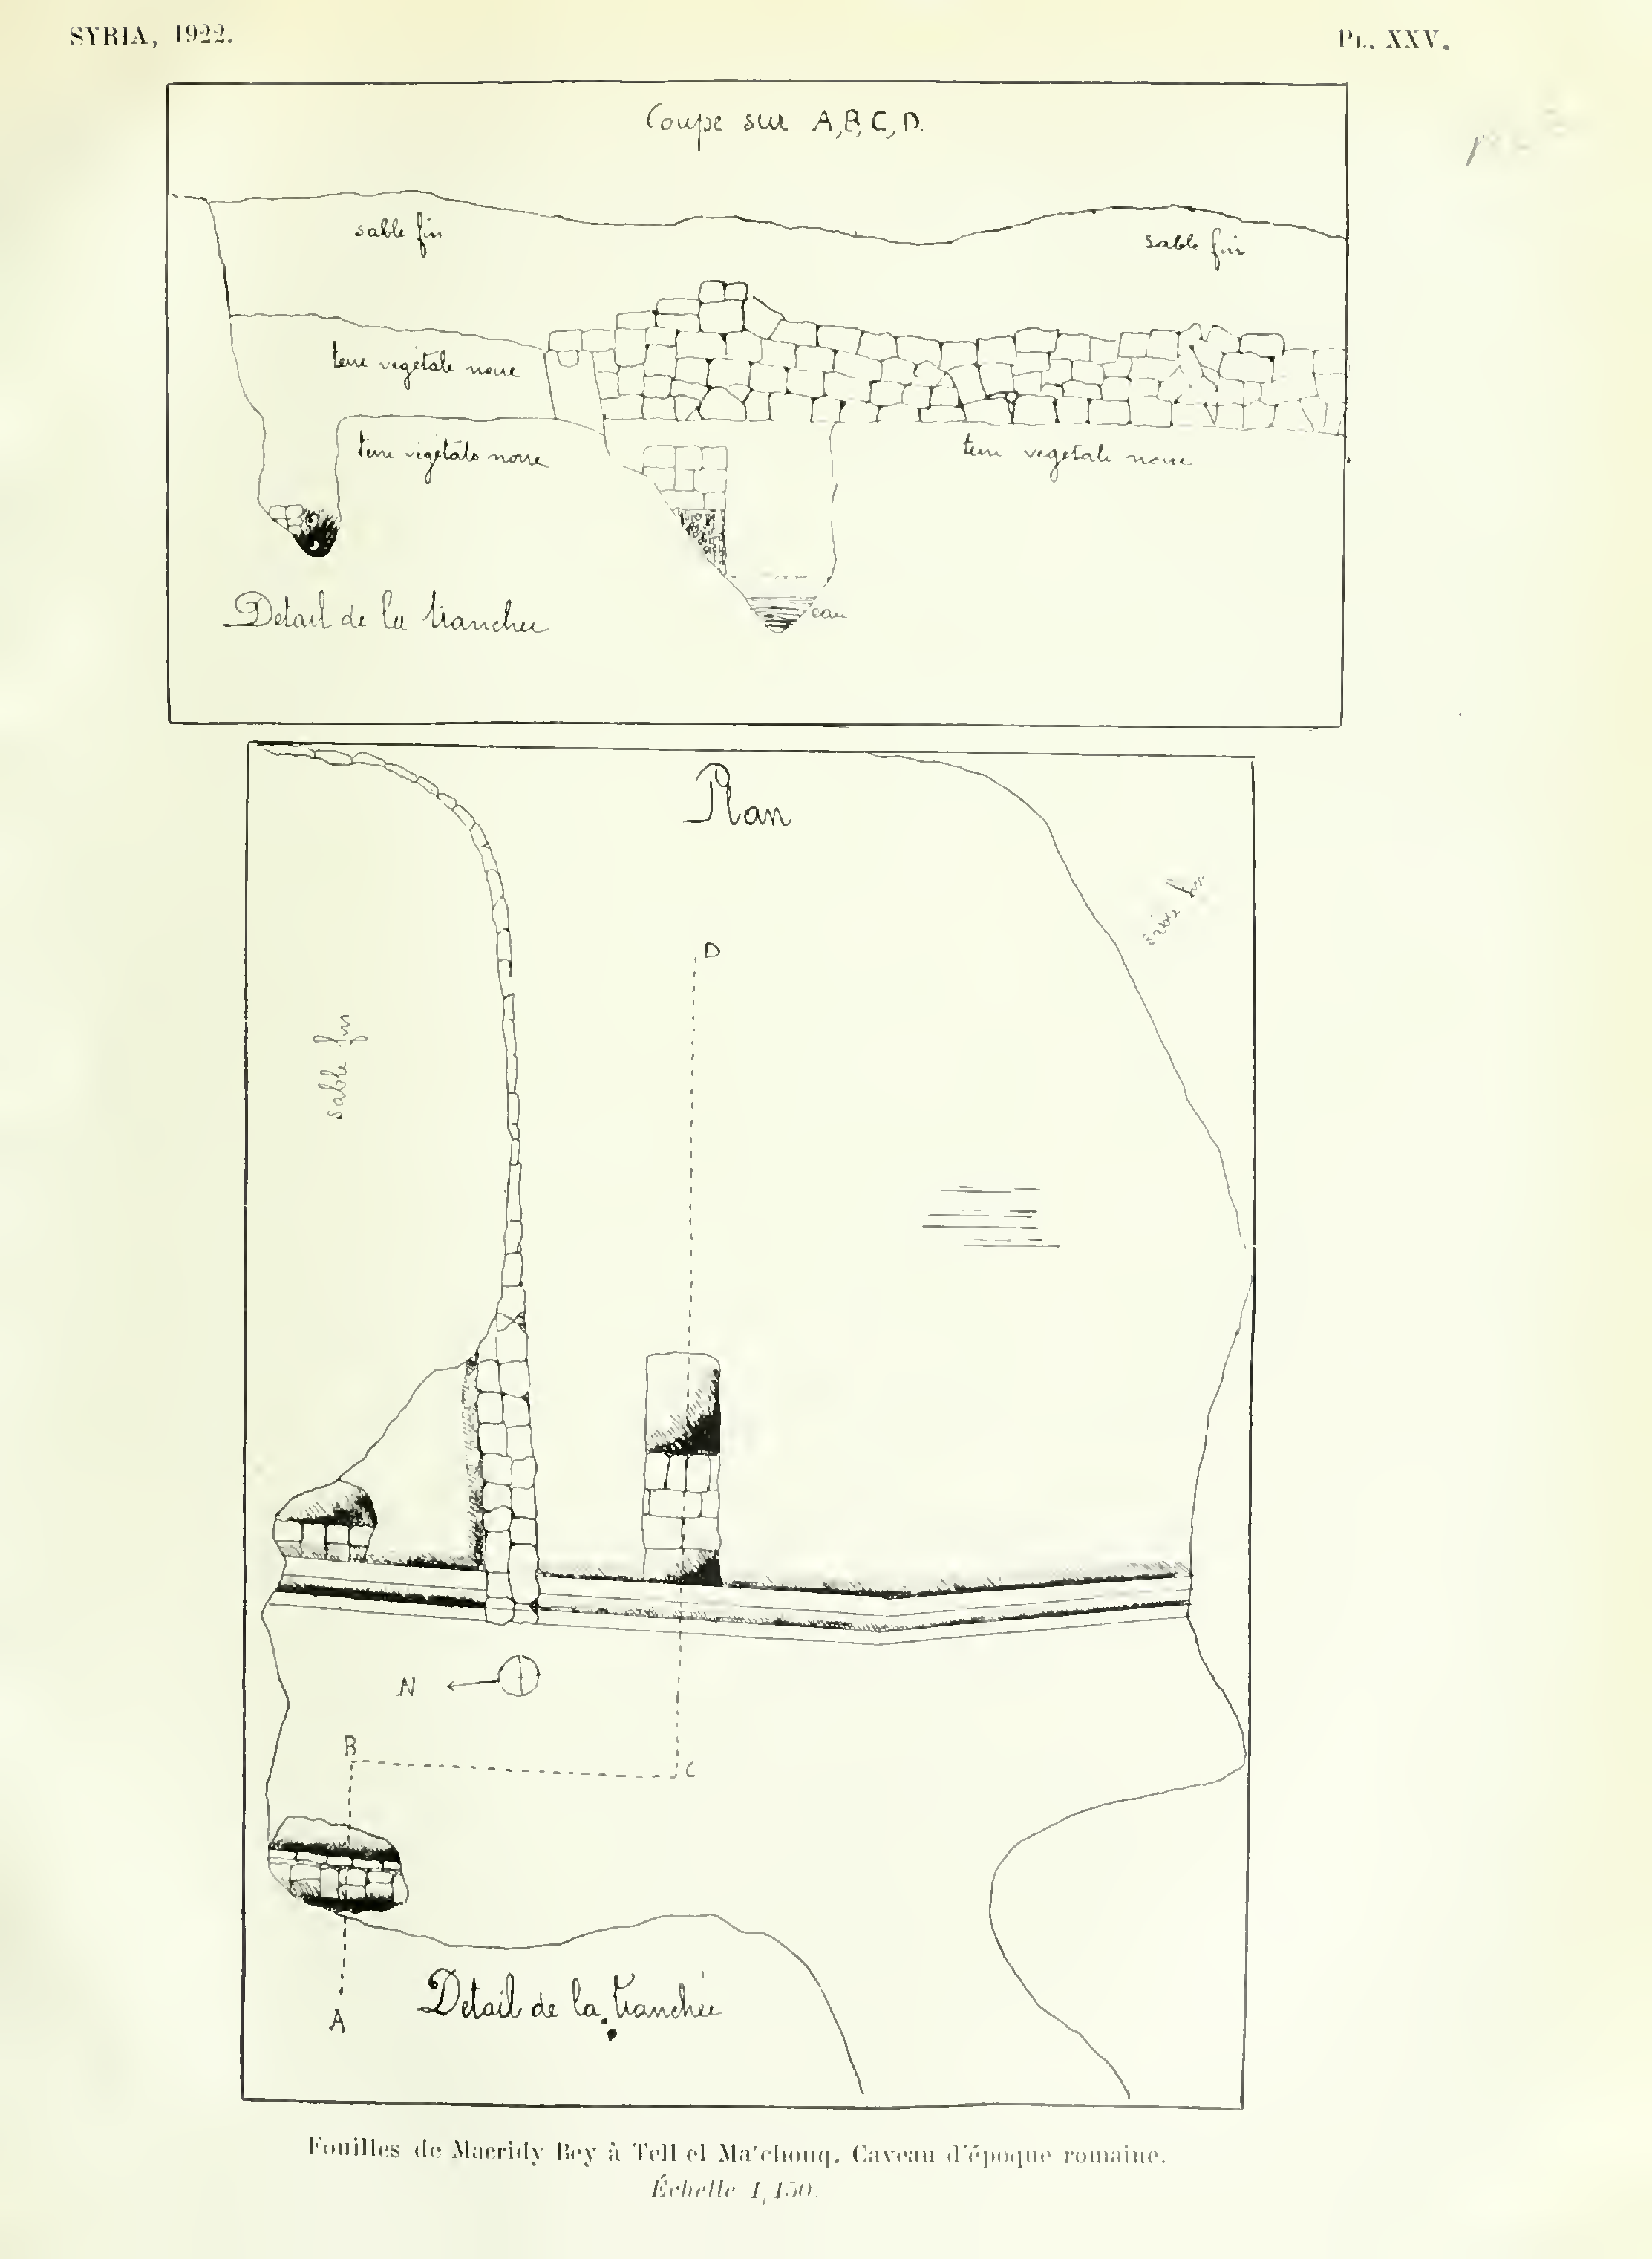 SYRIA, 1922.
PL. XXV.
Coupe sur A,B,C,D.
sable fin
sable fin
terre végétale noire
terre végétale noire
terre végétale noire
eau
Détail de la tranchée
Plan
D
sable fin
sable fin
N
B
C
A
Détail de la tranchée
Fouilles de Macridy Bey à Tell el Ma'chouq. Caveau d'époque romaine.
Échelle 1/150.